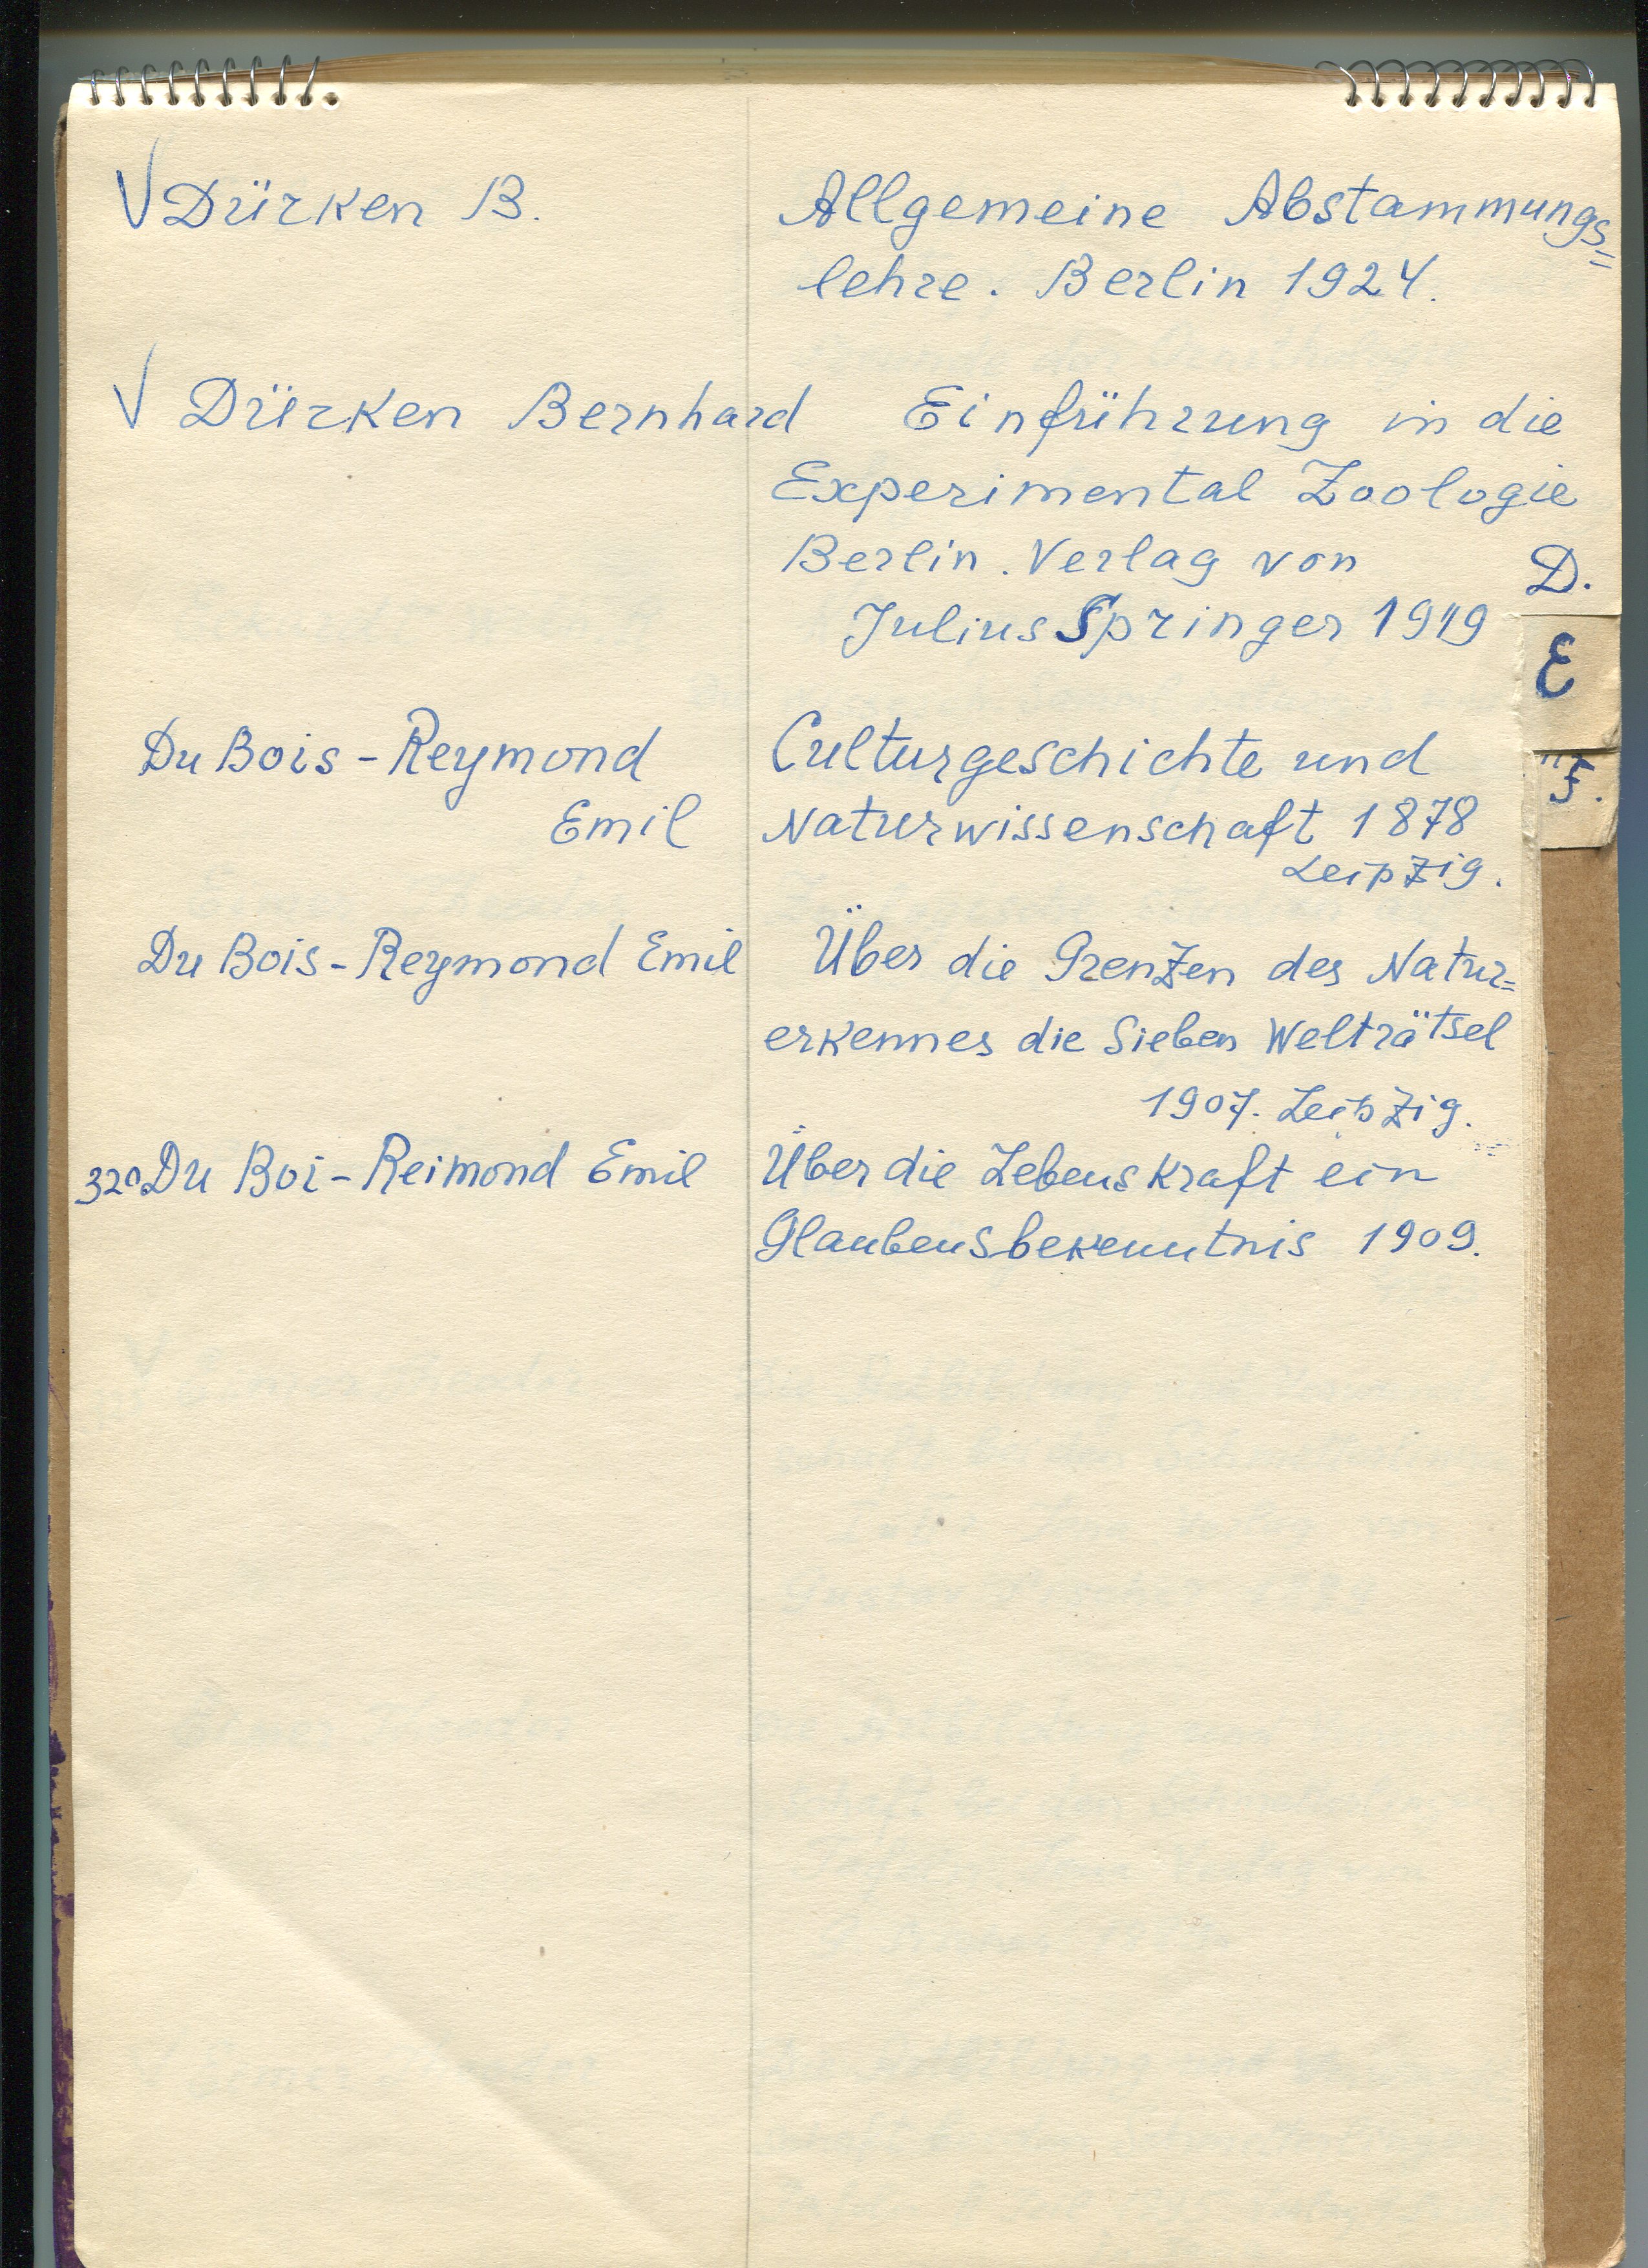 √ Dürken B. Allgemeine Abstammungs=
lehre. Berlin 1924.
√ Dürken Bernhard Einführung in die
Experimental Zoologie
Berlin. Verlag von
Julius Springer 1919
D.
E
F.
Du Bois-Reymond Culturgeschichte und
Emil Naturwissenschaft 1878
Leipzig.
Du Bois-Reymond Emil Über die Grenzen des Natur=
erkennes die Sieben Welträtsel
1907. Leipzig.
320 Du Boi-Reimond Emil Über die Lebenskraft ein
Glaubensbekenntnis 1909.